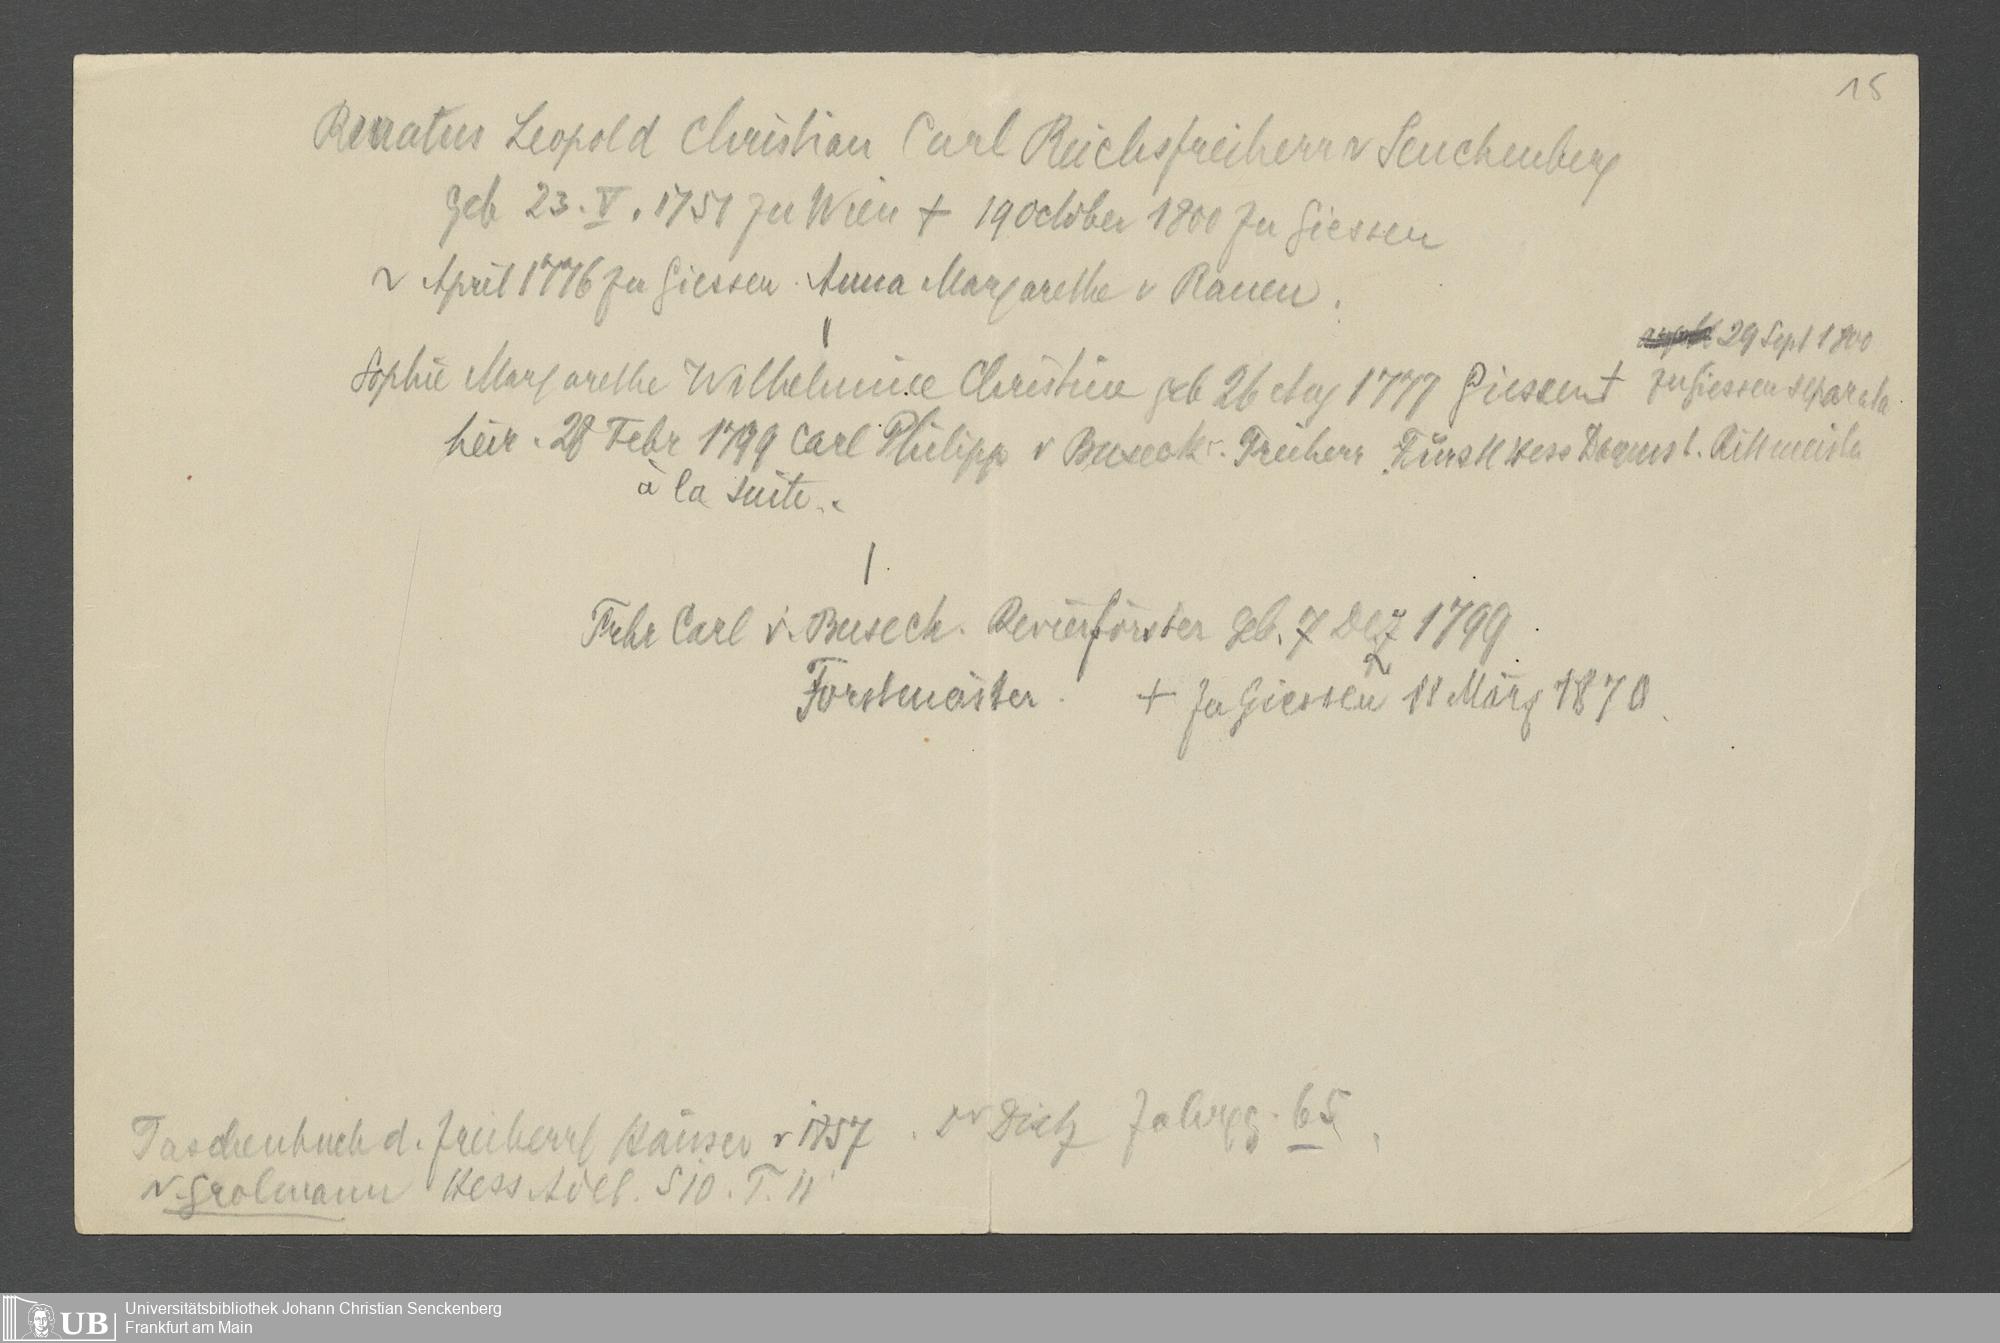 15
Renatus Leopold Christian Carl Reichsfreiherr v Senckenberg
geb 23. V. 1751 zu Wien + 19 October 1800 zu Giessen
April 1776 zu Giessen Anna Margarethe v Rauen.
29 Sept 1800
Sophie Margarethe Wilhelmine Christine geb 26 Aug 1777 Giessen +
zu Giessen separata
heir. 28 Febr 1799 Carl Philipp v Buseck. Freiherr Fürstl Hess Darmst. Rittmeister
à la suite.
Frhr Carl v. Buseck. Revierförster geb. 7 Dez 1799
Forstmeister. + zu Giessen 11 März 1870.
Taschenbuch d. freiherrl Häuser v 1857. Dietz Jahrgg. 65
v. Grolmann Hess Adel. S 10. T. 11
UB
Universitätsbibliothek Johann Christian Senckenberg
Frankfurt am Main